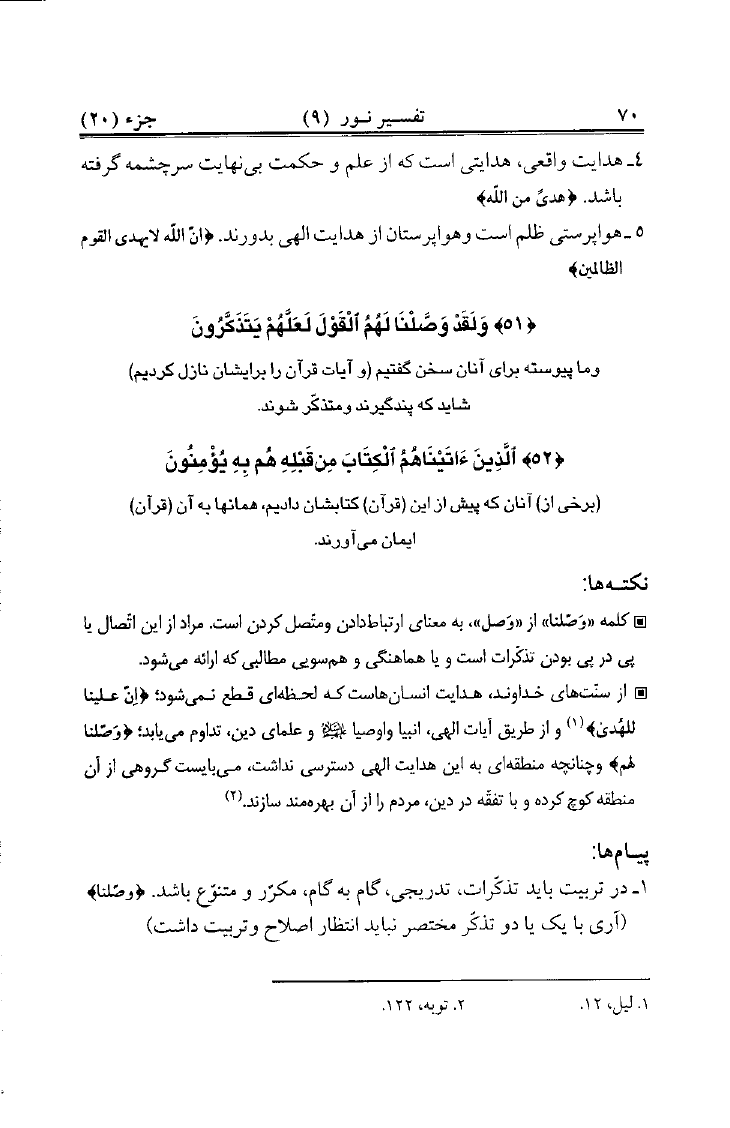 ۷۰ تفسیر نور (۹) جزء (۲۰)
٤ـ هدایت واقعی، هدایتی است که از علم و حکمت بی‌نهایت سرچشمه گرفته
باشد. ﴿هدیً من اللّه﴾
٥ ـ هواپرستی ظلم است وهواپرستان از هدایت الهی بدورند. ﴿انّ اللّه لایهدی القوم
الظالمین﴾
﴿٥١﴾ وَلَقَدْ وَصَّلْنَا لَهُمُ ٱلْقَوْلَ لَعَلَّهُمْ يَتَذَكَّرُونَ
وما پیوسته برای آنان سخن گفتیم (و آیات قرآن را برایشان نازل کردیم)
شاید که پندگیرند ومتذکّر شوند.
﴿٥٢﴾ ٱلَّذِينَ ءَاتَيْنَاهُمُ ٱلْكِتَابَ مِن قَبْلِهِ هُم بِهِ يُؤْمِنُونَ
(برخی از) آنان که پیش از این (قرآن) کتابشان دادیم، همانها به آن (قرآن)
ایمان می‌آورند.
نکته‌ها:
▣ کلمه «وَصّلنا» از «وَصل»، به معنای ارتباط‌دادن ومتّصل کردن است. مراد از این اتّصال یا
پی در پی بودن تذکّرات است و یا هماهنگی و هم‌سویی مطالبی که ارائه می‌شود.
▣ از سنّت‌های خداوند، هدایت انسان‌هاست که لحظه‌ای قطع نمی‌شود؛ ﴿اِنّ علینا
للهُدیٰ﴾(۱) و از طریق آیات الهی، انبیا واوصیا ﷺ و علمای دین، تداوم می‌یابد؛ ﴿وَصّلنا
لهم﴾ وچنانچه منطقه‌ای به این هدایت الهی دسترسی نداشت، می‌بایست گروهی از آن
منطقه کوچ کرده و با تفقّه در دین، مردم را از آن بهره‌مند سازند.(۲)
پیام‌ها:
۱ـ در تربیت باید تذکّرات، تدریجی، گام به گام، مکرّر و متنوّع باشد. ﴿وصّلنا﴾
(آری با یک یا دو تذکّر مختصر نباید انتظار اصلاح وتربیت داشت)
۱. لیل، ۱۲. ۲. توبه، ۱۲۲.